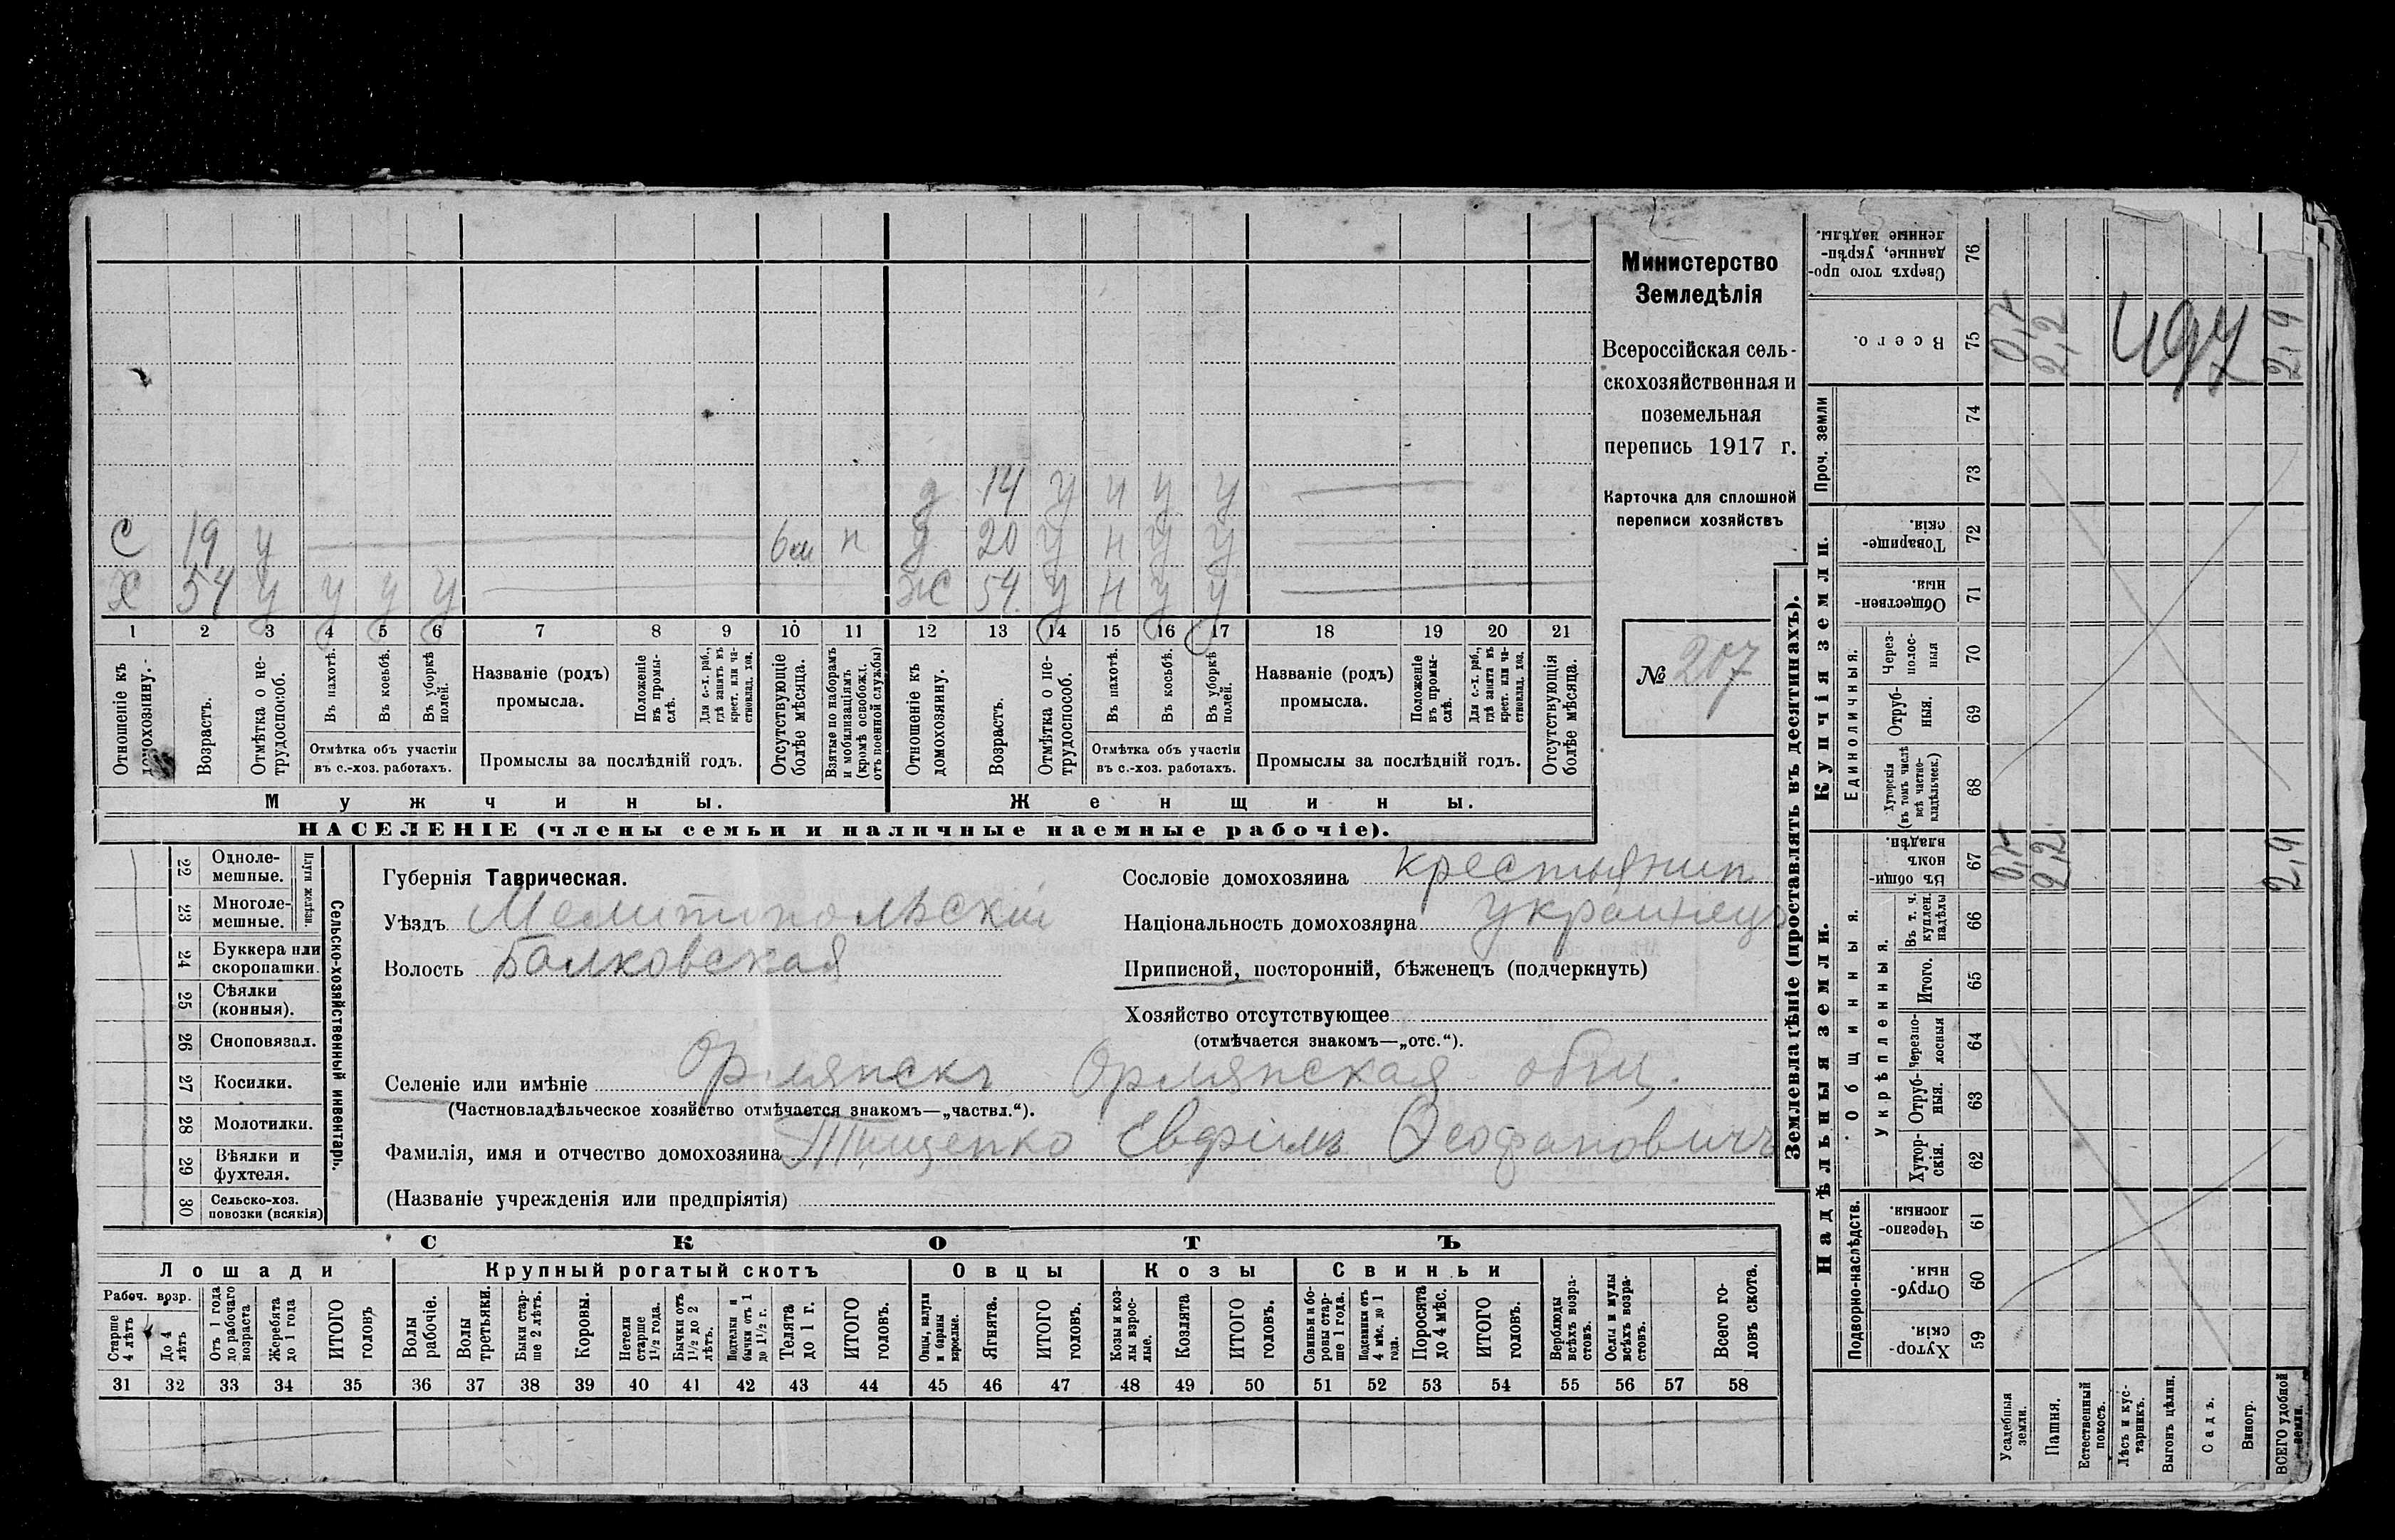 Министерство
Земледѣлія
Всероссійская сель-
скохозяйственная и
поземельная
перепись 1917 г.
Карточка для сплошной
переписи хозяйствъ
№ 207
д 14 у н у у
С 19 у 6 м н д 20 у н у у
Х 54 у у у у Ж 54 у н у у
1 2 3 4 5 6 7 8 9 10 11 12 13 14 15 16 17 18 19 20 21
Отношеніе къ домохозяину.
Возрастъ.
Отмѣтка о не-
трудоспособ.
Въ пахотѣ.
Въ косьбѣ.
Въ уборкѣ
полей.
Отмѣтка объ участіи
въ с.-хоз. работахъ.
Названіе (родъ)
промысла.
Положеніе
въ промы-
слѣ.
Для с.-х. раб.,
гдѣ занятъ въ
крест. или ча-
стновлад. хоз.
Промыслы за послѣдній годъ.
Отсутствующіе
болѣе мѣсяца.
Взятые по наборамъ
и мобилизаціямъ
(кромѣ освобожд.
отъ военной службы)
Отношеніе къ
домохозяину.
Возрастъ.
Отмѣтка о не-
трудоспособ.
Въ пахотѣ.
Въ косьбѣ.
Въ уборкѣ
полей.
Отмѣтка объ участіи
въ с.-хоз. работахъ.
Названіе (родъ)
промысла.
Положеніе
въ промы-
слѣ.
Для с.-х. раб.,
гдѣ занята въ
крест. или ча-
стновлад. хоз.
Промыслы за послѣдній годъ.
Отсутствующія
болѣе мѣсяца.
Мужчины. Женщины.
НАСЕЛЕНІЕ (члены семьи и наличные наемные рабочіе).
Сельско-хозяйственный инвентарь.
Плуги желѣзн.
22 Одноле-
мешные.
23 Многоле-
мешные.
24 Буккера или
скоропашки.
25 Сѣялки
(конныя).
26 Сноповязал.
27 Косилки.
28 Молотилки.
29 Вѣялки и
фухтеля.
30 Сельско-хоз.
повозки (всякія)
Губернія Таврическая.
Уѣздъ Мелитопольскій
Волость Балковская
Сословіе домохозяина крестьянин
Національность домохозяина украинецъ
Приписной, посторонній, бѣженецъ (подчеркнуть)
Хозяйство отсутствующее
(отмѣчается знакомъ—„отс.“).
Селеніе или имѣніе Орлянскъ Орлянская общ.
(Частновладѣльческое хозяйство отмѣчается знакомъ—„частвл.“).
Фамилія, имя и отчество домохозяина Тищенко Евфимъ Феофановичъ
(Названіе учрежденія или предпріятія)
СКОТЪ
Лошади Крупный рогатый скотъ Овцы Козы Свиньи
Рабоч. возр.
Старше
4 лѣтъ
До 4
лѣтъ
Отъ 1 года
до рабочаго
возраста
Жеребята
до 1 года
ИТОГО
головъ
Волы
рабочіе.
Волы
третьяки.
Быки стар-
ше 2 лѣтъ.
Коровы.
Нетели
старше
1½ года.
Бычки отъ
1½ до 2
лѣтъ.
Подтелки и
бычки отъ 1
до 1½ г.
Телята
до 1 г.
ИТОГО
головъ.
Овцы, валухи
и бараны
взрослые.
Ягнята.
ИТОГО
головъ.
Козы и коз-
лы взрос-
лые.
Козлята
ИТОГО
головъ.
Свиньи и бо-
ровы стар-
ше 1 года.
Подсвинки отъ
4 мѣс. до 1
года.
Поросята
до 4 мѣс.
ИТОГО
головъ.
Верблюды
всѣхъ возра-
стовъ.
Ослы и мулы
всѣхъ возра-
стовъ.
Всего го-
ловъ скота.
31 32 33 34 35 36 37 38 39 40 41 42 43 44 45 46 47 48 49 50 51 52 53 54 55 56 57 58
Землевладѣніе (проставлять въ десятинахъ).
Сверхъ того про-
данные, укрѣп-
ленные надѣлы. 76
Всего. 75 2,2 497 2,9
Проч. земли
74
73
Купчія земли.
Товарище-
скія. 72
Обществен-
ныя. 71
Единоличныя.
Через-
полос-
ныя 70
Отруб-
ныя. 69
Хуторскія
(въ томъ числѣ
всѣ частно-
владѣльческ.) 68
Надѣльныя земли.
Общинныя.
Въ общин-
номъ
владѣн. 67 2,2 2,9
Укрѣпленныя.
Въ т. ч.
куплен.
надѣлы 66
Итого. 65
Черезпо-
лосныя 64
Отруб-
ныя. 63
Хутор-
скія. 62
Подворно-наслѣдств.
Черезпо-
лосныя. 61
Отруб-
ныя. 60
Хутор-
скія. 59
Усадебныя
земли.
Пашня.
Естественный
покосъ.
Лѣсъ и кус-
тарникъ.
Выгонъ цѣлин.
Садъ.
Виногр.
ВСЕГО удобной
земли.